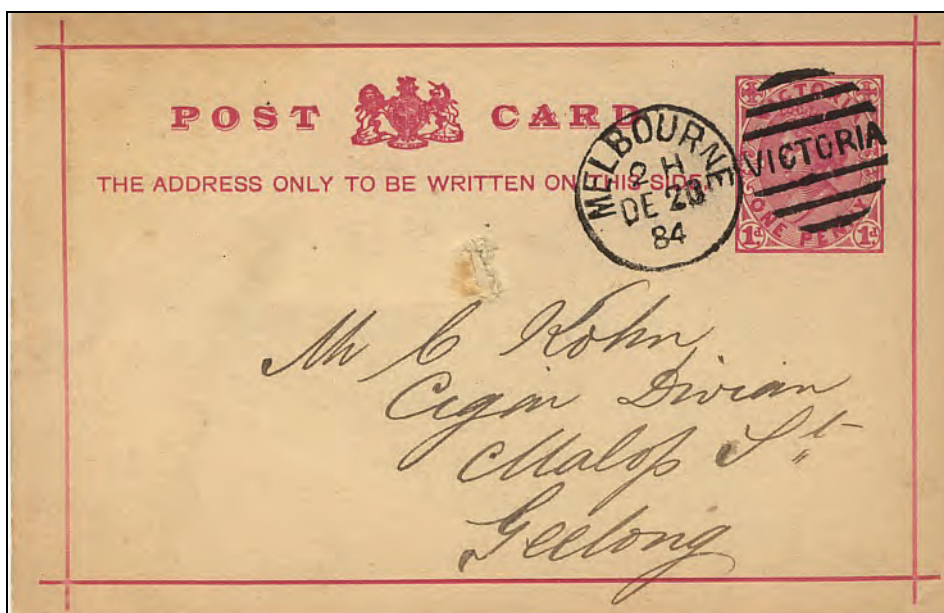 POST CARD
THE ADDRESS ONLY TO BE WRITTEN ON THIS SIDE.
MELBOURNE
2 H
DE 20
84
VICTORIA
VICTORIA
ONE PENNY
1d 1d
Mr C Kohn
Cigar Divian
Malop St
Geelong